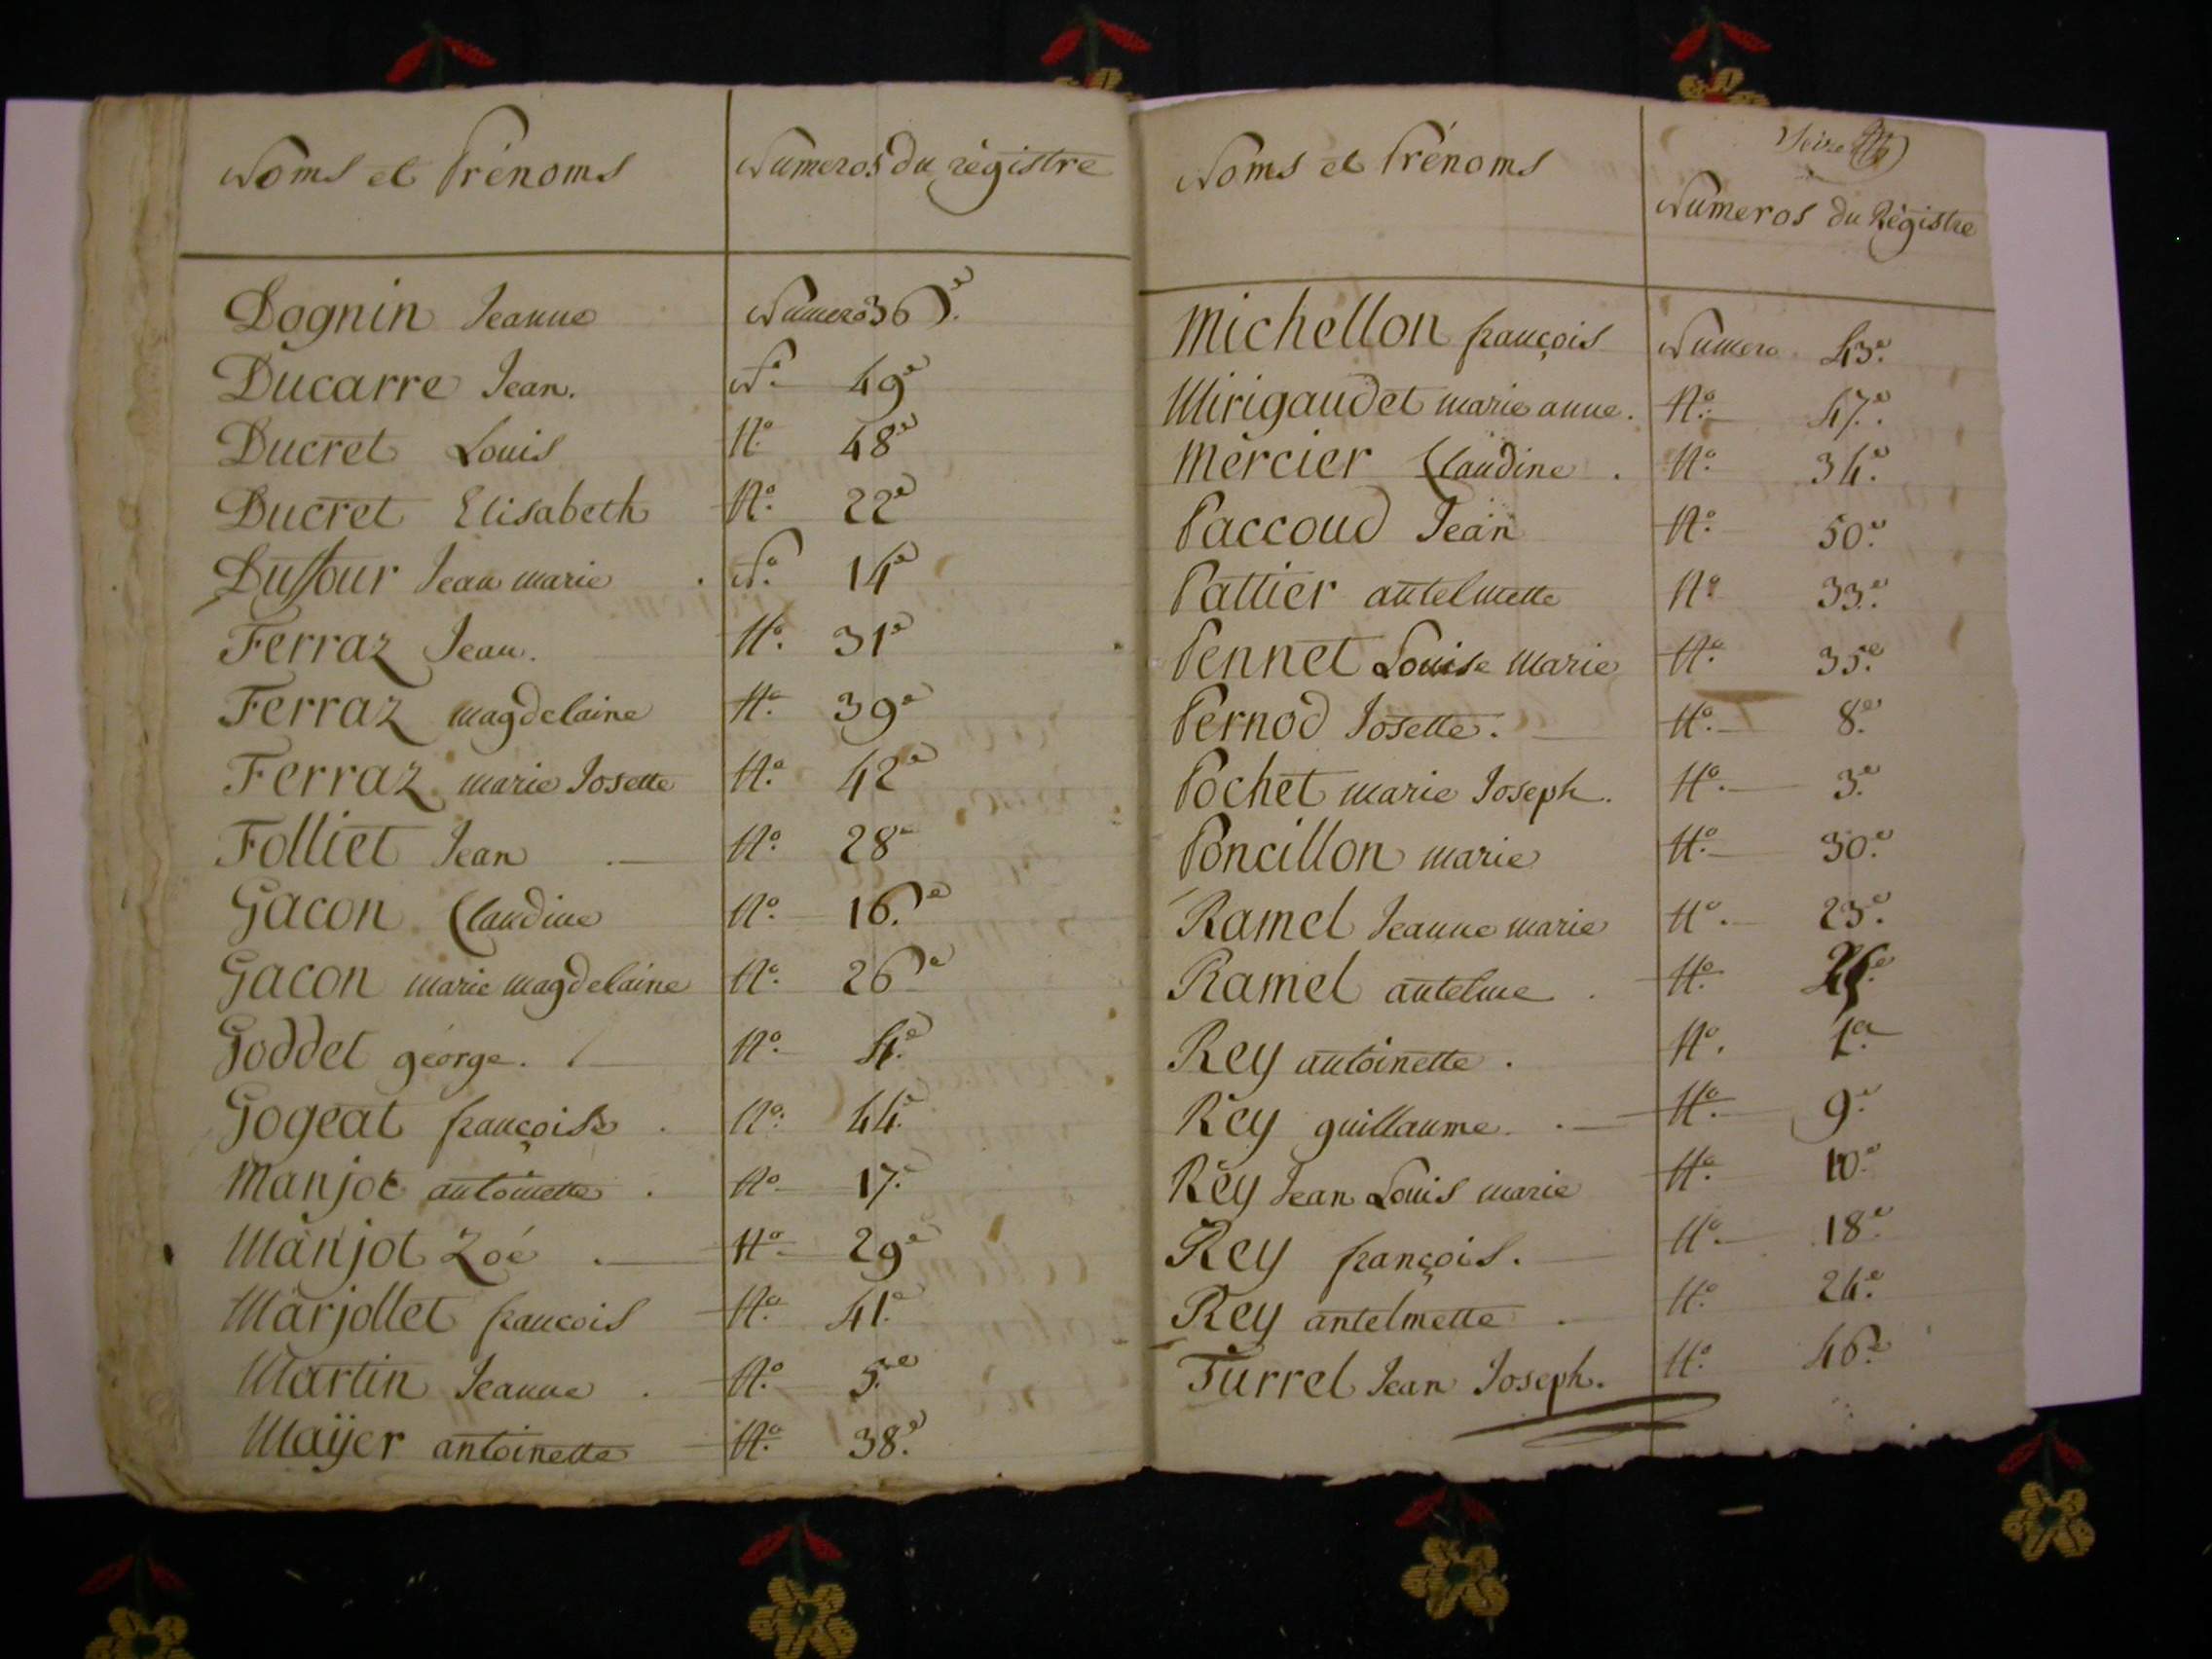 Noms et Prénoms Numeros du régistre
Dognin Jeanne Numero 36e.
Ducarre Jean. No. 49e
Ducret Louis No. 48e
Ducret Elisabeth No. 22e
Duffour Jean marie No. 14e
Ferraz Jean. No. 31e
Ferraz magdelaine No. 39e
Ferraz marie Josette No. 42e
Folliet Jean No. 28e
Gacon Claudine No. 16.e
Gacon marie magdelaine No. 26e
Goddet géorge. No. 4.e
Gogeat françoise No. 44.e
Manjot antoinette No. 17.e
Manjot Zoé No. 29e
Marjollet francois No. 41.e
Martin Jeanne No. 5.e
Maÿer antoinette No. 38.e
Noms et Prénoms Numeros du Régistre
Michellon françois Numero 43.e
Mirigaudet marie anne. No. 47.e
Mercier Claudine No. 34.e
Paccoud Jean No. 50.e
Pattier antelmette No. 33.e
Pennet Louise marie No. 35.e
Pernod Josette. No. 8.e
Pochet marie Joseph. No. 3.e
Poncillon marie No. 30.e
Ramel Jeanne marie No. 23.e
Ramel antelme No.
Rey antoinette. No. 1er
Rey guillaume No. 9.e
Rey Jean Louis marie No. 10.e
Rey françois. No. 18.e
Rey antelmette No. 24.e
Turrel Jean Joseph. No. 46.e